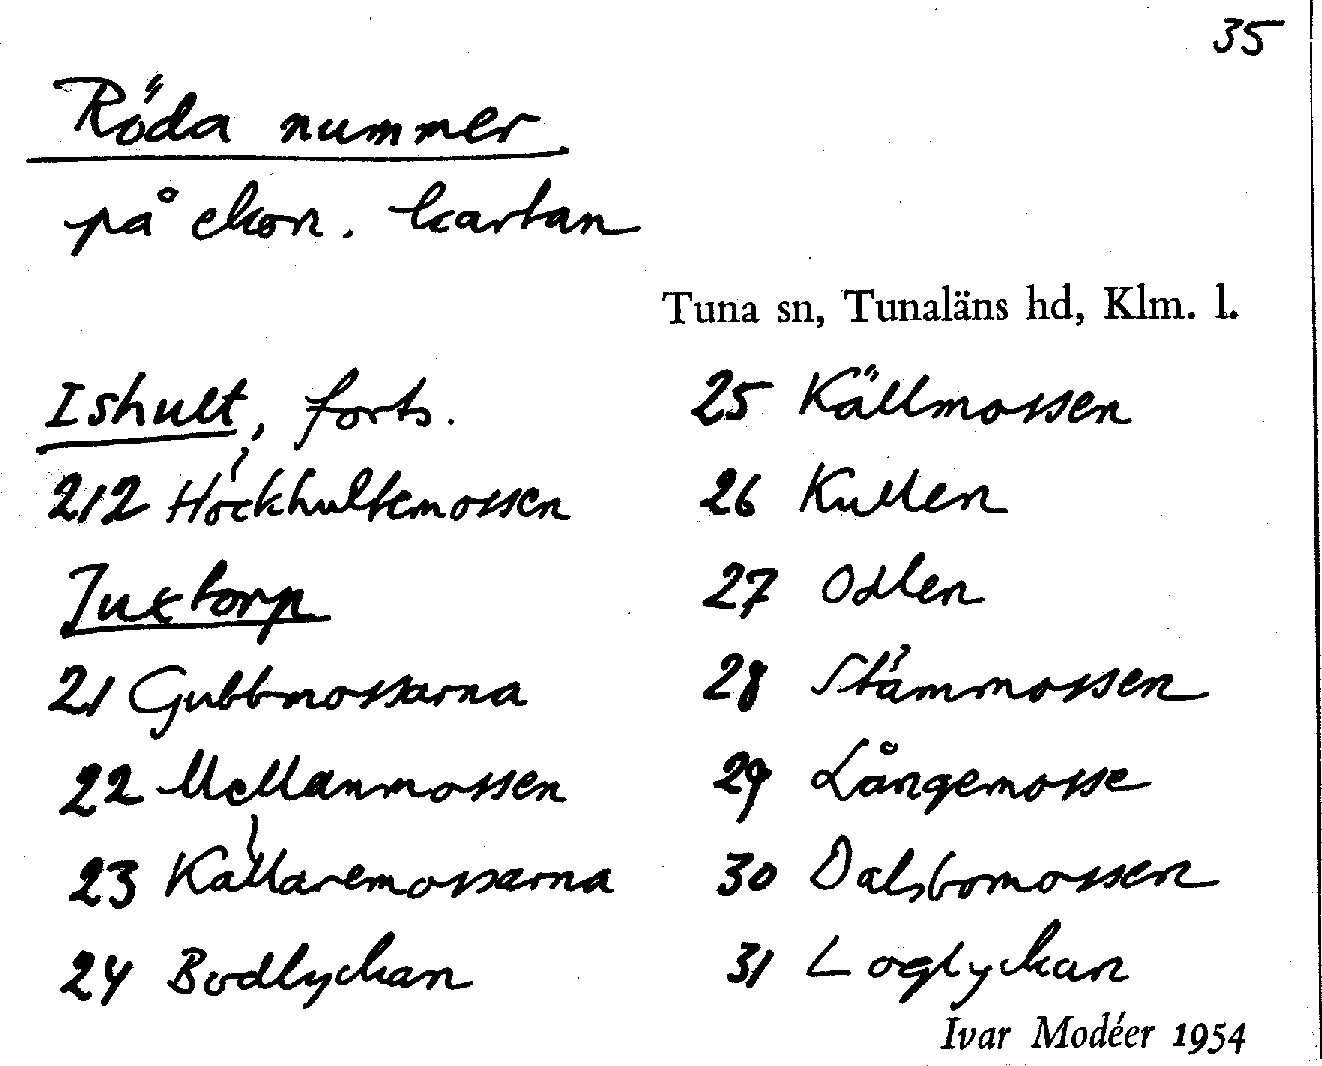 35
Röda nummer
på ekon. kartan
Tuna sn, Tunaläns hd, Klm. l.
Ishult, forts.
212 Höckhultemossen
Juxtorp
21 Gubbmossarna
22 Mellanmossen
23 Källaremossarna
24 Bodlyckan
25 Källmossen
26 Kullen
27 Odlen
28 Stämmossen
29 Långemosse
30 Dalsbomossen
31 Loglyckan
Ivar Modéer 1954